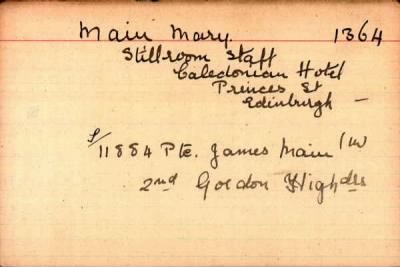 Main Mary. 1364
Stillroom Staff
Caledonian Hotel
Princes St
Edinburgh –
S/11884 Pte. James Main
2nd Gordon Highdrs